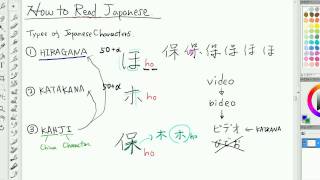 How to Read Japanese
Types of Japanese Characters
① HIRAGANA 50+α ほ ho 保 保 ほ ほ ほ
② KATAKANA 50+α ホ ho
③ KAHJI 保 ho → ホ ホ ho
China Character
video
bideo
ビデオ ← KATAKANA